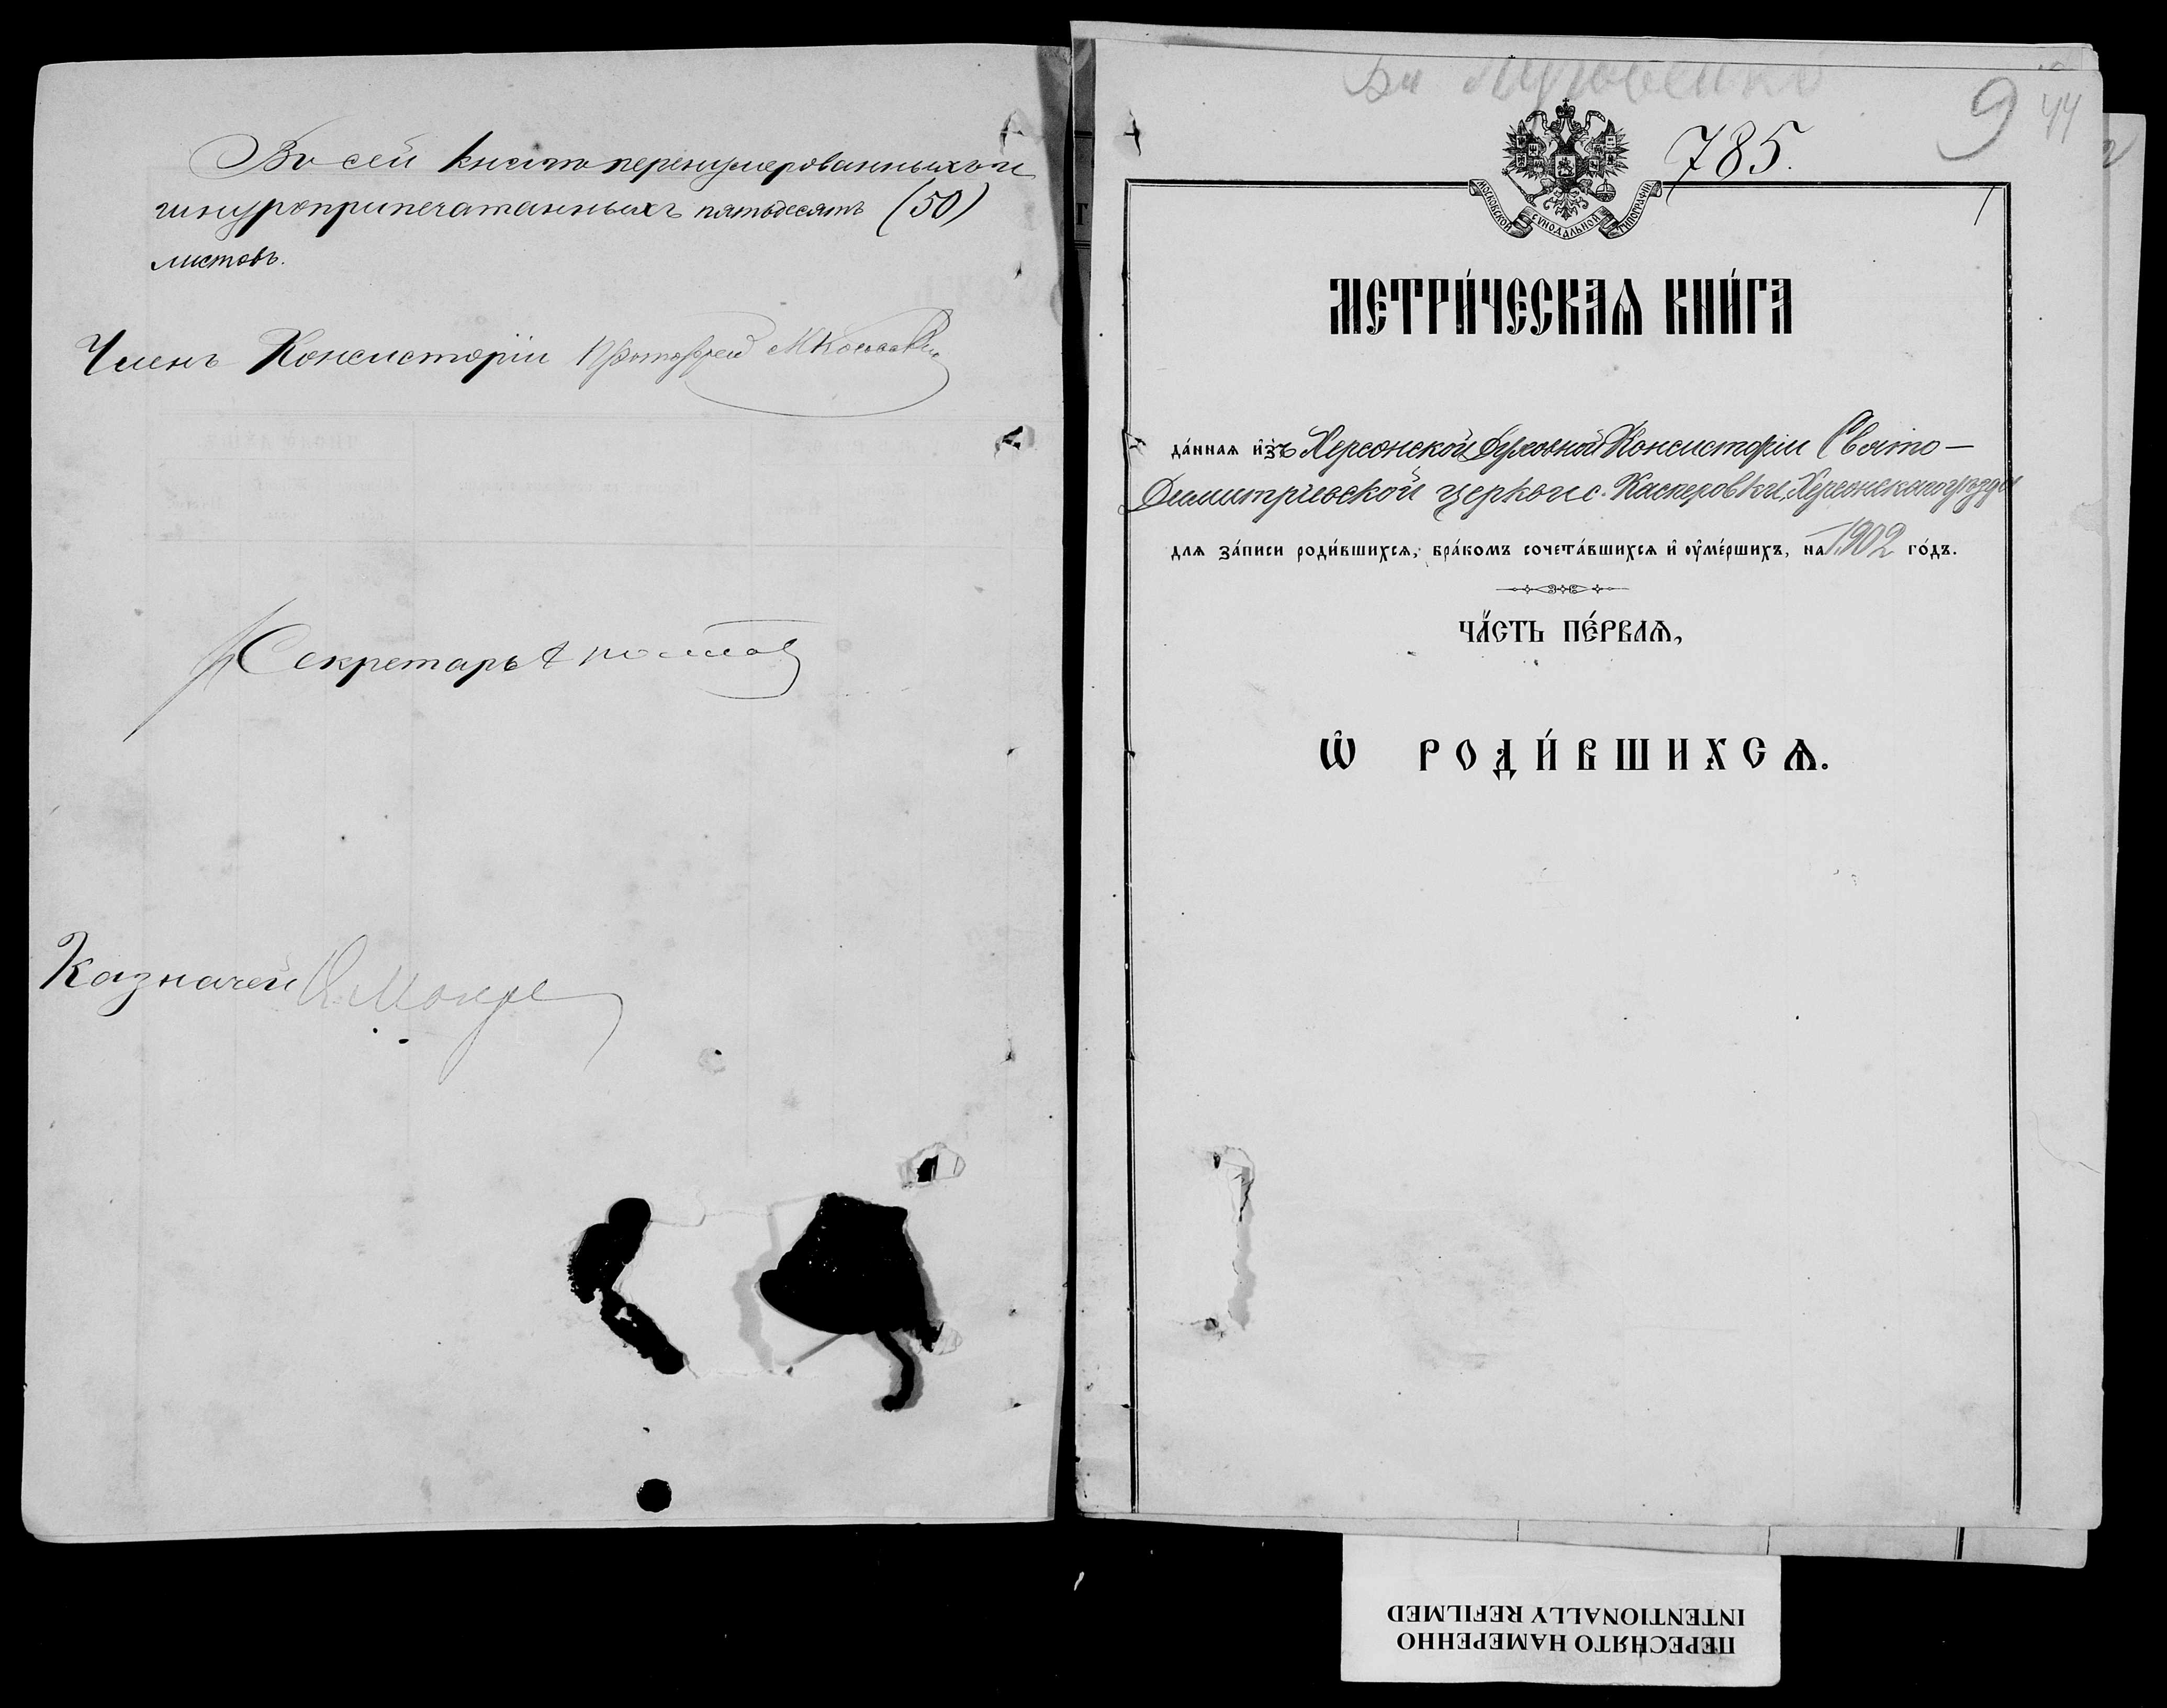 Въ сей книгѣ перенумерованныхъ и
шнуроприпечатанныхъ пятьдесятъ (50)
листовъ.
Членъ Консисторіи Протоіерей
Секретарь
Казначей
9 44
785.
1
МОСКОВСКОЙ СѴНОДАЛЬНОЙ ТИПОГРАФІИ
МЕТРИ́ЧЕСКАѦ КНИ́ГА
да́ннаѧ и҆зъ Херсонской Духовной Консисторіи Свято-
Димитріевской церкви с. Касперовки, Херсонскаго уѣзда
для за́писи роди́вшихсѧ, бра́комъ сочета́вшихсѧ и҆ оу҆ме́ршихъ, на 1902 го́дъ.
ЧА́СТЬ ПЕ́РВАѦ,
Ѡ҆ РОДИ́ВШИХСѦ.
ПЕРЕСНЯТО НАМЕРЕННО
INTENTIONALLY REFILMED